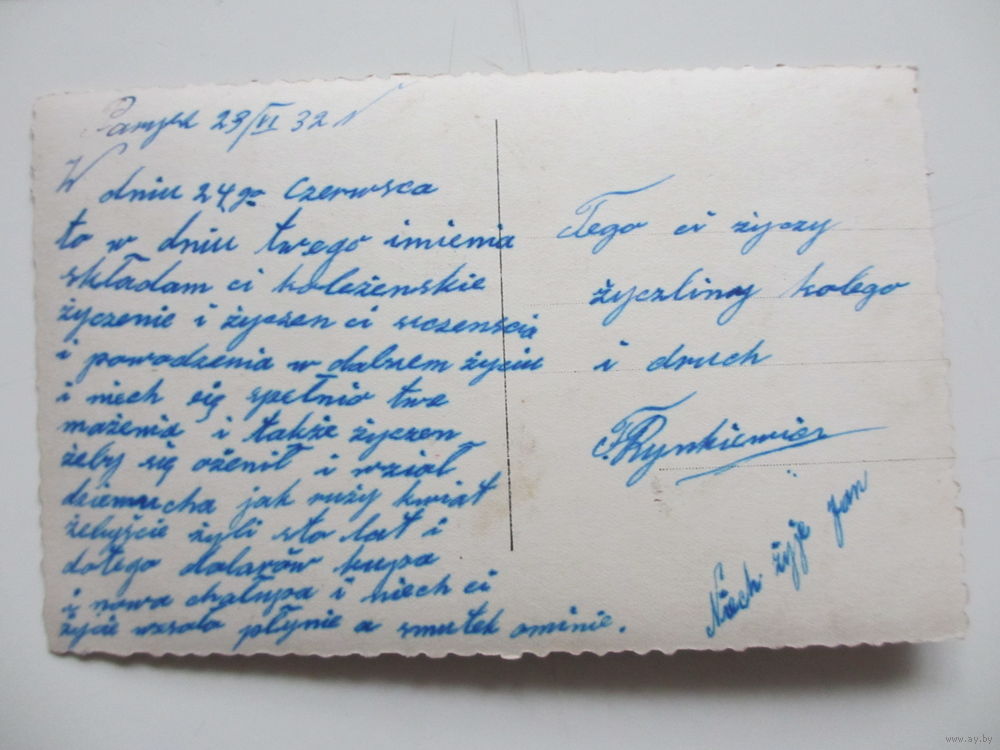 23/VI 32 r
W dniu 24go Czerwsca
to w dniu twego imienia
składam ci koleżenskie
życzenie i życzen ci sczenscia
i powodzenia w dalnem życiu
i niech się spełnio twe
mażenia i także życzen
żeby się ożenił i wzioł
dziewucha jak ruży kwiat
żebyście żyli sto lat i
dotego dolarów kupa
i nowa chałupa i niech ci
życie wesoło płynie a smutek ominie.
Tego ci życzy
życzliwy kolego
i druch
Rynkiewicz
Niech żyje Jan
www.ay.by